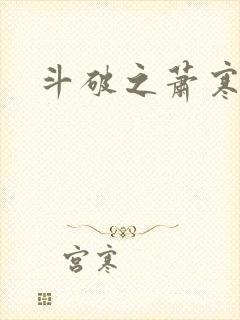 斗破之萧寒
宫寒